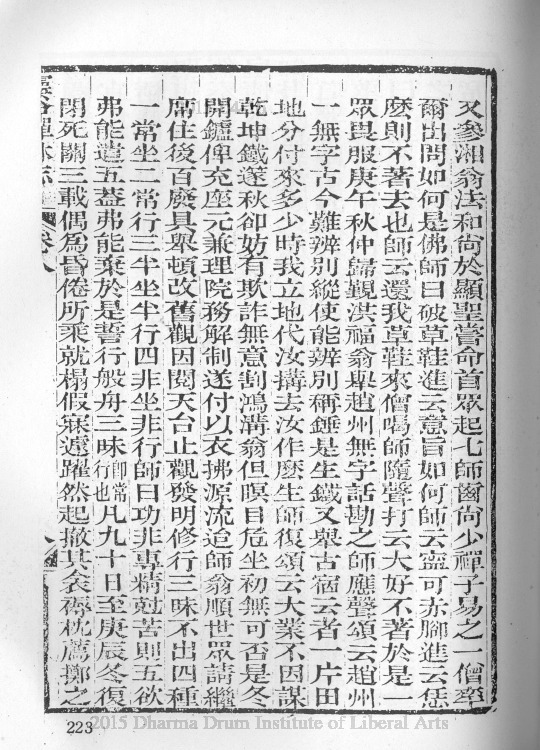 又參湘翁法和尚於顯聖嘗命首眾起七師齒尚少禪子易之一僧卒
爾出問如何是佛師曰破草鞋進云意旨如何師云寧可赤腳進云恁
麼則不著去也師云還我草鞋來僧喝師隨聲打云大好不著於是一
眾畏服庚午秋仲歸覲洪福翁舉趙州無字話勘之師應聲頌云趙州
一無字古今難辨別縱使能辨別稱錘是生鐵又舉古宿云者一片田
地分付來多少時我立地代汝搆去汝作麼生師復頌云大業不因謀
乾坤鐵蒺秋卻妨有欺詐無意割鴻溝翁但瞑目危坐初無可否是冬
開鑪俾充座元兼理院務解制遂付以衣拂源流迨師翁順世眾請繼
席住後百廢具舉頓改舊觀因閱天台止觀發明修行三昧不出四種
一常坐二常行三半坐半行四非坐非行師曰功非專精尅苦則五欲
弗能遣五蓋弗能棄於是誓行般舟三昧即常行也凡九十日至庚辰冬復
閉死關三載偶為昏倦所乘就榻假寐遽躍然起撤其衾褥枕薦擲之
雲谷禪林志 卷八 八
223
2015 Dharma Drum Institute of Liberal Arts